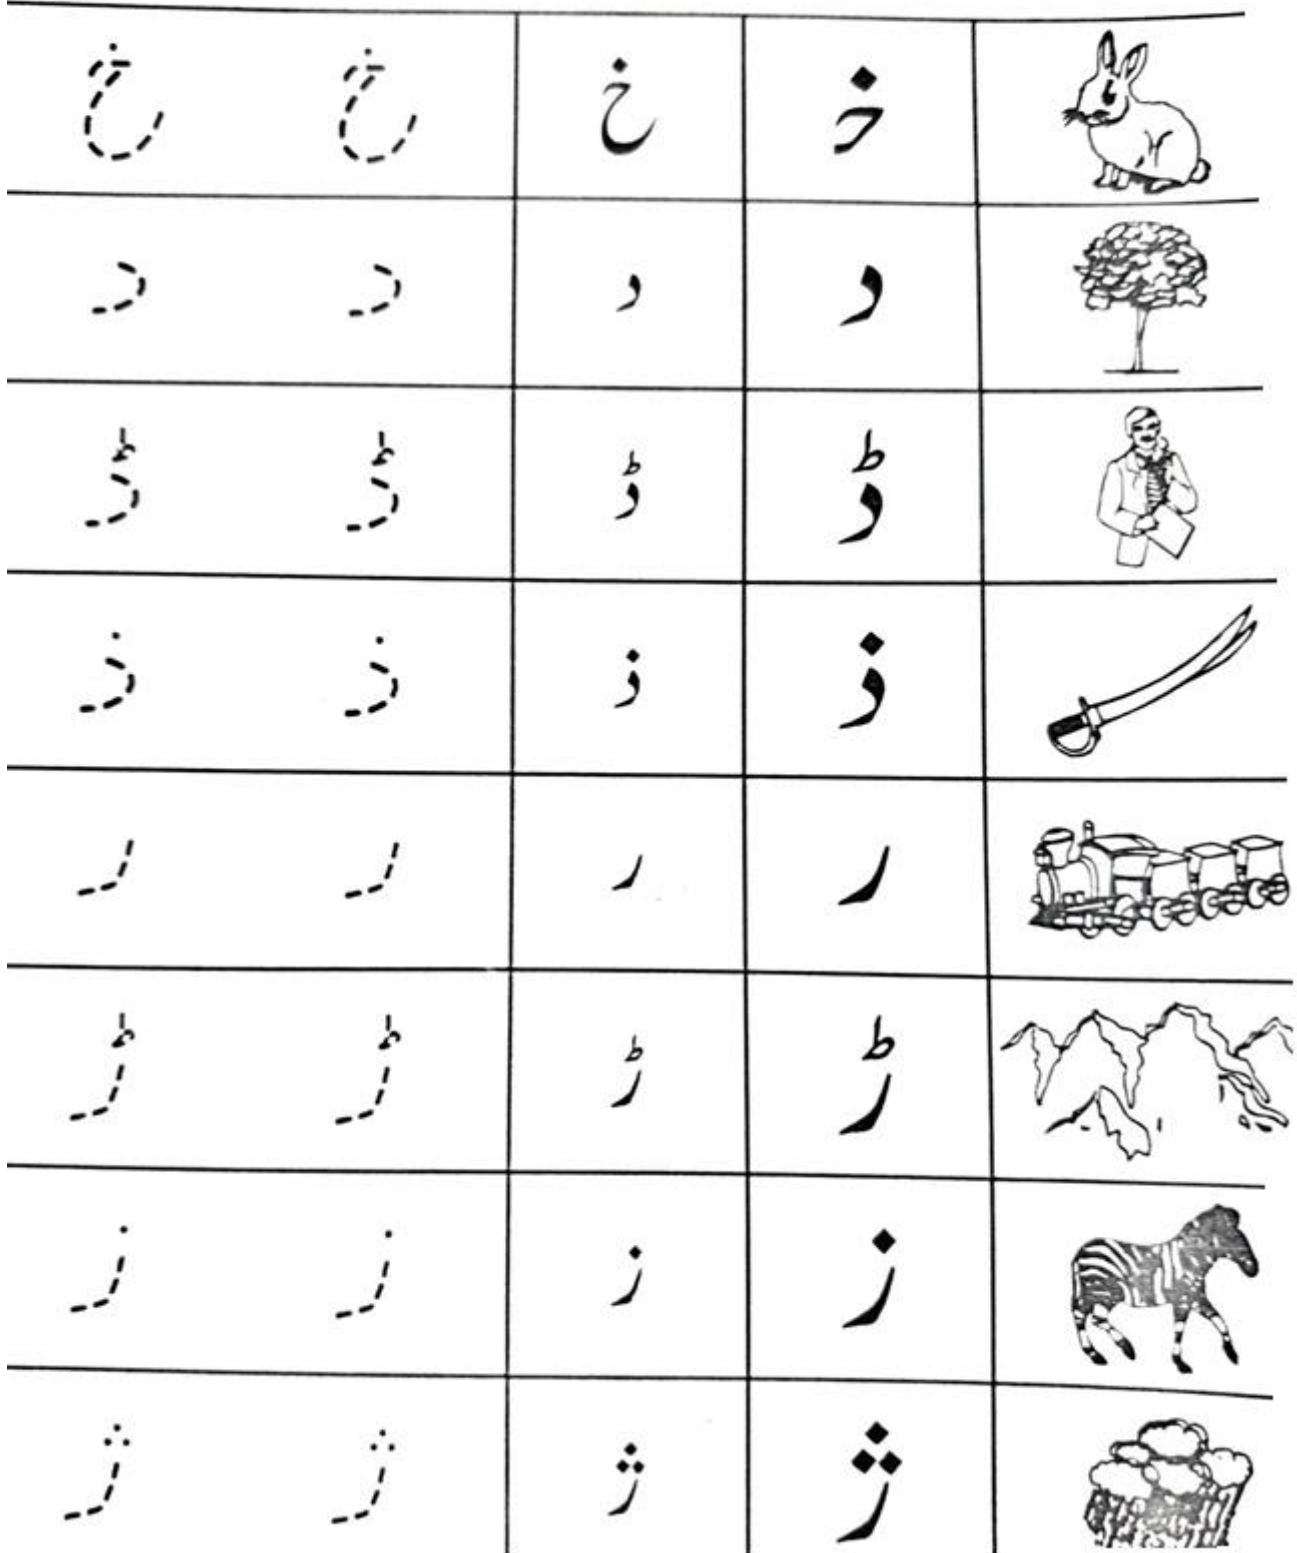 خـ خ خ خ
د د د د
ڈ ڈ ڈ ڈ
ذ ذ ذ ذ
ر ر ر ر
ڑ ڑ ڑ ڑ
ز ز ز ز
ژ ژ ژ ژ